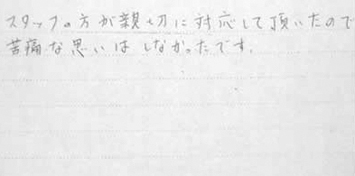 スタッフの方が親切に対応して頂いたので
苦痛な思いはしなかったです。